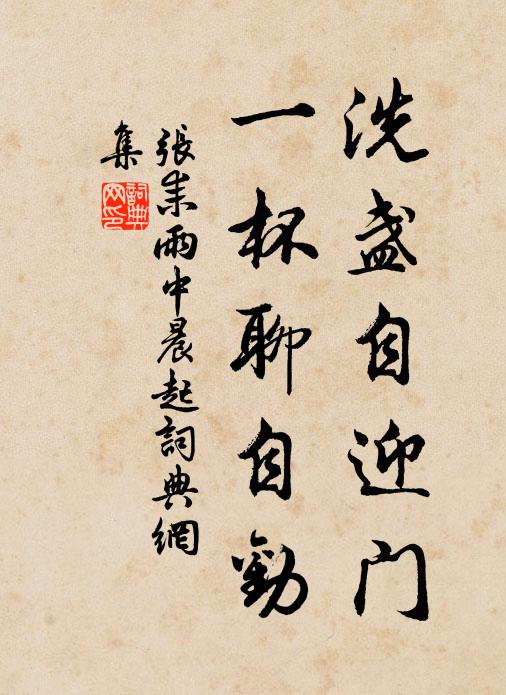 洗盏自迎门
一杯聊自勸
張耒雨中晨起詞典網
集
詞典
网印